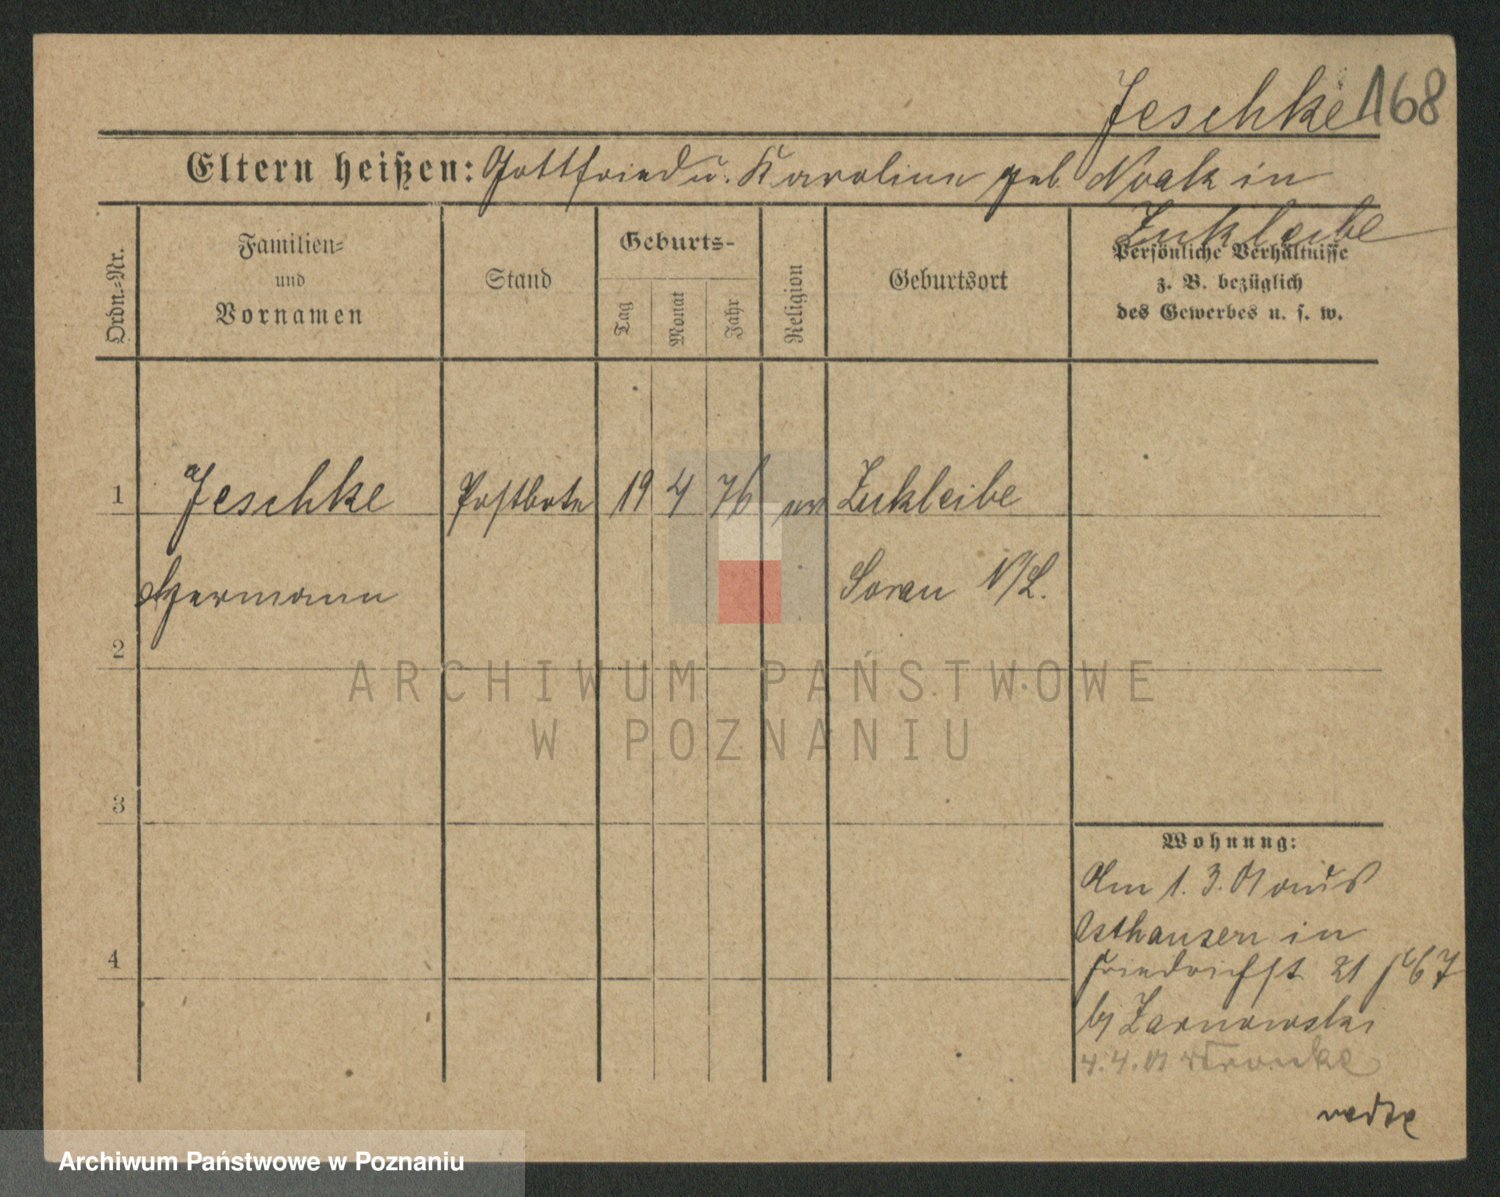 Jeschke 168
Eltern heißen: Gottfried u. Karoline geb. Noak in
Zukleibe
Ordn.-Nr.
Familien-
und
Vornamen
Stand
Geburts-
Tag
Monat
Jahr
Religion
Geburtsort
Persönliche Verhältnisse
z. B. bezüglich
des Gewerbes u. s. w.
1 Jeschke Postbote 19 4 76 ev Zukleibe
Hermann Sorau N/L.
2
ARCHIWUM PAŃSTWOWE
W POZNANIU
3
Wohnung:
Am 1. 3. 01 aus
Osthausen in
4
Friedrichst 21
b/ Zarnowski
4. 4. 01 Wronke
Archiwum Państwowe w Poznaniu